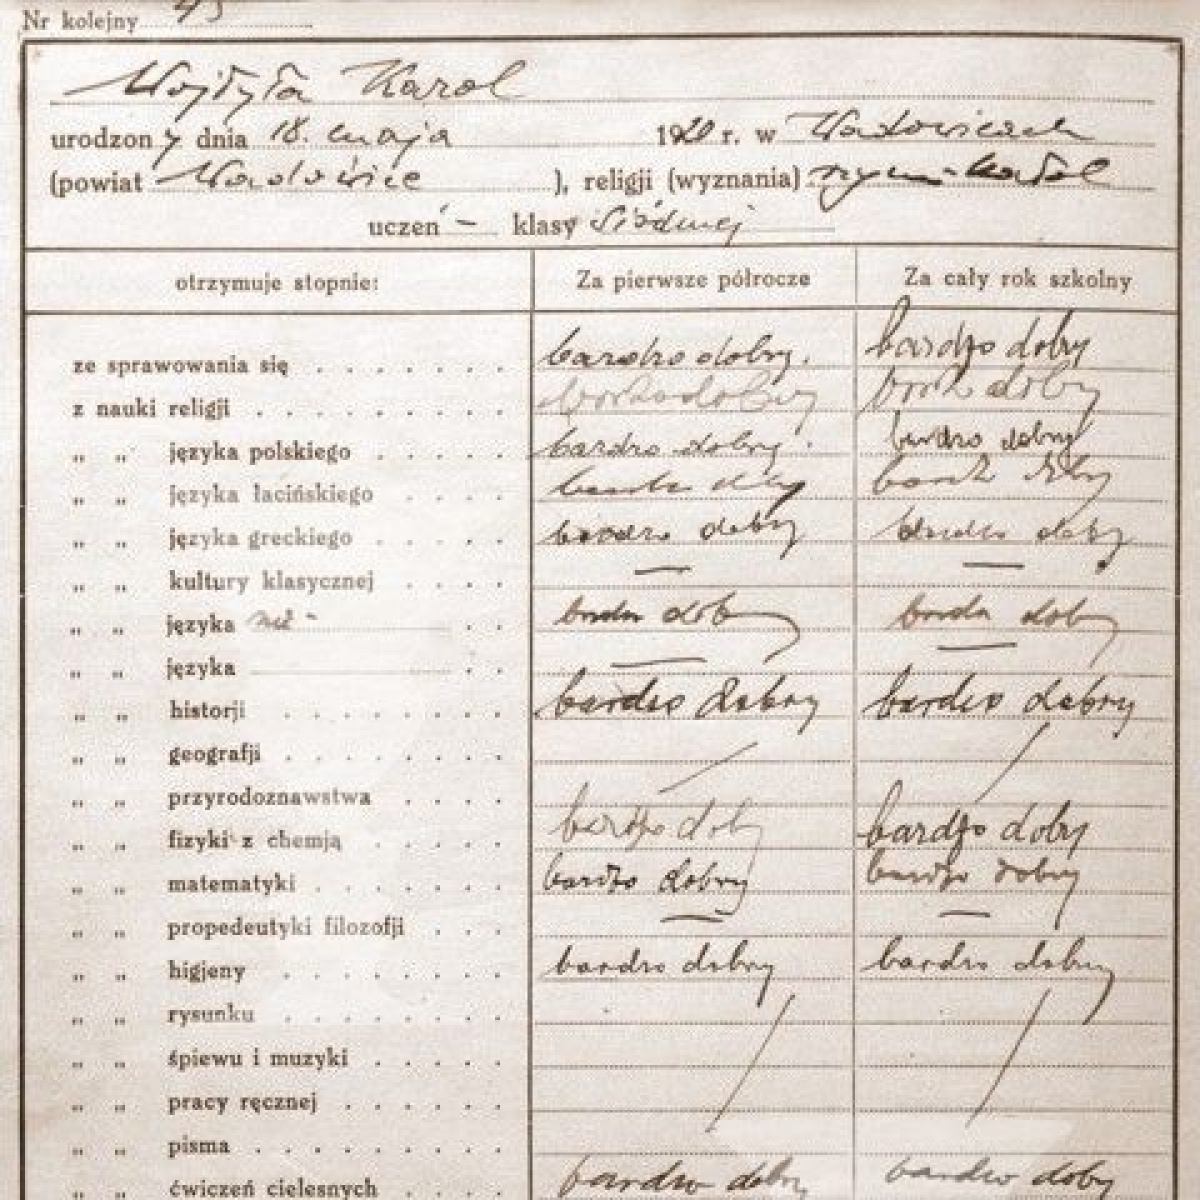 Nr kolejny 45
Wojtyła Karol
urodzony dnia 18. maja 1920 r. w Wadowicach
(powiat Wadowice ), religji (wyznania) rzym-katol
uczeń - klasy siódmej
otrzymuje stopnie: Za pierwsze półrocze Za cały rok szkolny
ze sprawowania się . . . . . . . bardzo dobry. bardzo dobry
z nauki religji . . . . . . . . bardzo dobry bardzo dobry
„ „ języka polskiego . . . . . bardzo dobry. bardzo dobry
„ „ języka łacińskiego . . . . bardzo dobry bardzo dobry
„ „ języka greckiego . . . . . bardzo dobry bardzo dobry
„ „ kultury klasycznej . . . . — —
„ „ języka niem- . . bardzo dobry bardzo dobry
„ „ języka . . — —
„ „ historji . . . . . . . bardzo dobry bardzo dobry
„ „ geografji . . . . . . .
„ „ przyrodoznawstwa . . . .
„ „ fizyki z chemją . . . . . bardzo dobry bardzo dobry
„ „ matematyki . . . . . . bardzo dobry bardzo dobry
„ „ propedeutyki filozofji . . . — —
„ „ higjeny . . . . . . . bardzo dobry bardzo dobry
„ „ rysunku . . . . . . .
„ „ śpiewu i muzyki . . . . .
„ „ pracy ręcznej . . . . . .
„ „ pisma . . . . . . . .
„ „ ćwiczeń cielesnych . . . . bardzo dobry bardzo dobry